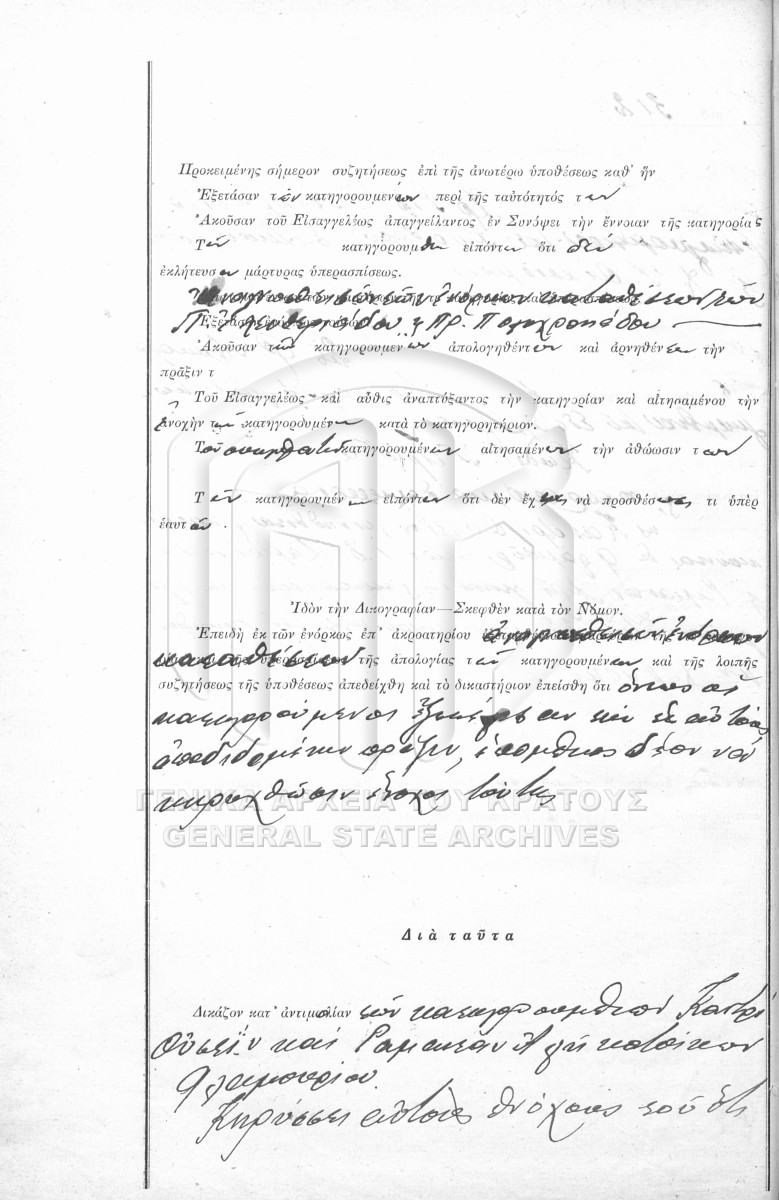 Προκειμένης σήμερον συζητήσεως ἐπὶ τῆς ἀνωτέρω ὑποθέσεως καθ' ἥν
Ἐξετάσαν τῶν κατηγορουμένων περὶ τῆς ταὐτότητός των
Ἀκοῦσαν τοῦ Εἰσαγγελέως ἀπαγγείλαντος ἐν Συνόψει τὴν ἔννοιαν τῆς κατηγορίας
Τῶν κατηγορουμ εἰπόντων ὅτι δὲν
ἐκλήτευσαν μάρτυρας ὑπερασπίσεως.
Ἀκοῦσαν τῶν κατηγορουμένων ἀπολογηθέντων καὶ ἀρνηθέντων τὴν
πρᾶξιν τ
Τοῦ Εἰσαγγελέως καὶ αὖθις ἀναπτύξαντος τὴν κατηγορίαν καὶ αἰτησαμένου τὴν
ἐνοχὴν τῶν κατηγορουμένων κατὰ τὸ κατηγορητήριον.
κατηγορουμένων αἰτησαμένων τὴν ἀθώωσιν των
Τῶν κατηγορουμένων εἰπόντων ὅτι δὲν ἔχ νὰ προσθέσ τι ὑπὲρ
ἑαυτῶν.
Ἰδὸν τὴν Δικογραφίαν—Σκεφθὲν κατὰ τὸν Νόμον.
Ἐπειδὴ ἐκ τῶν ἐνόρκως ἐπ' ἀκροατηρίου
καταθέσεων τῆς ἀπολογίας τῶν κατηγορουμένων καὶ τῆς λοιπῆς
συζητήσεως τῆς ὑποθέσεως ἀπεδείχθη καὶ τὸ δικαστήριον ἐπείσθη ὅτι ὄντως οἱ
κατηγορούμενοι ἐξετέλεσαν τὴν εἰς αὐτοὺς
ἀποδιδομένην πρᾶξιν, ἑπομένως δέον νὰ
κηρυχθῶσιν ἔνοχοι ταύτης
ΓΕΝΙΚΑ ΑΡΧΕΙΑ ΤΟΥ ΚΡΑΤΟΥΣ
GENERAL STATE ARCHIVES
Διὰ ταῦτα
Δικάζον κατ' ἀντιμωλίαν τῶν κατηγορουμένων
Οὐσεῒν καὶ Ραμαζὰν Ἀλῆ κατοίκων
Κηρύσσει αὐτοὺς ἐνόχους τοῦ ὅτι